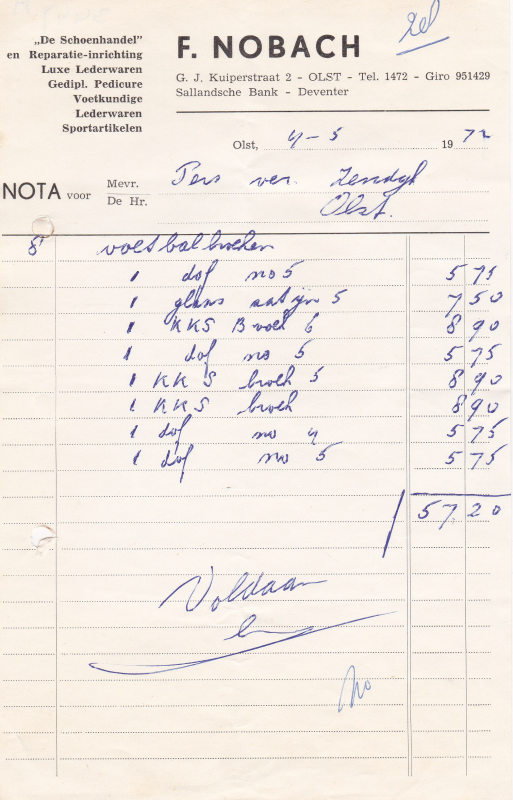 „De Schoenhandel"
en Reparatie-inrichting
Luxe Lederwaren
Gedipl. Pedicure
Voetkundige
Lederwaren
Sportartikelen
F. NOBACH
G. J. Kuiperstraat 2 - OLST - Tel. 1472 - Giro 951429
Sallandsche Bank - Deventer
Olst, 4-5 1972
NOTA voor Mevr. De Hr.
Pers ver.
Olst.
8 voetbalbroeken
1 dof no 5 5 75
1 glans satijn 5 7 50
1 KKS Broek 6 8 90
1 dof no 5 5 75
1 KKS broek 5 8 90
1 KKS broek 8 90
1 dof no 4 5 75
1 dof no 5 5 75
57,20
Voldaan